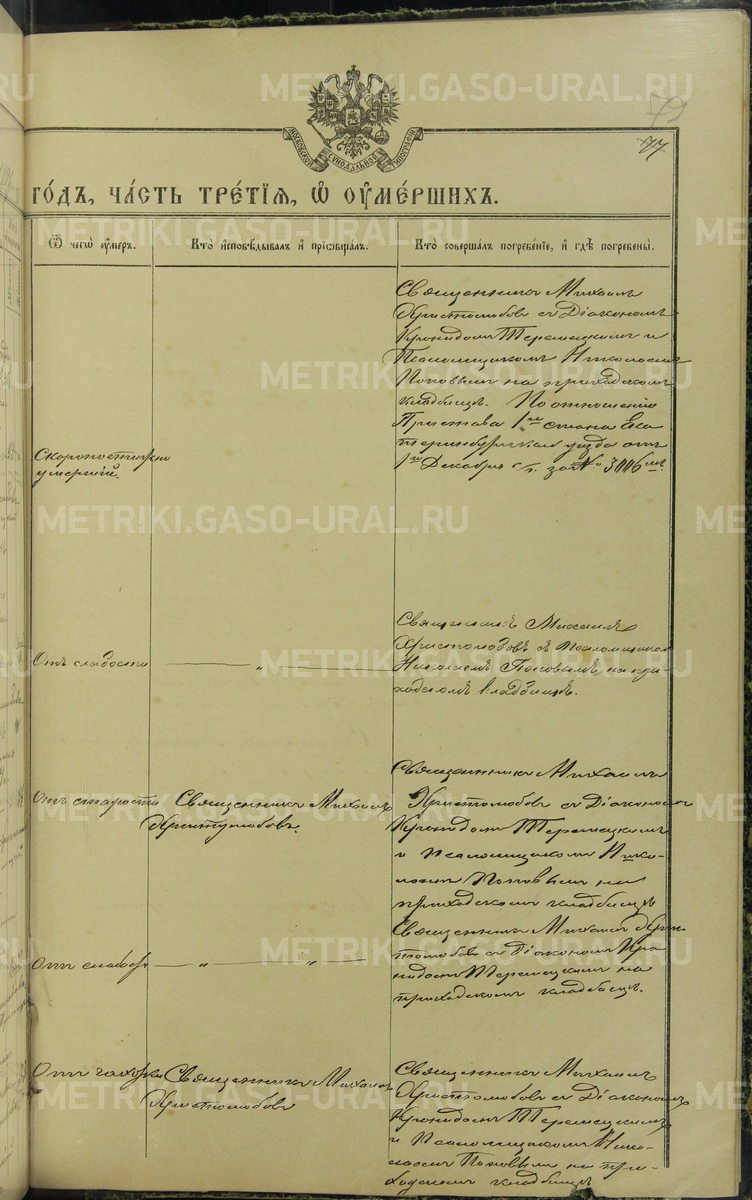 79
77
МОСКОВСКОЙ СѴНОДАЛЬНОЙ ТИПОГРАФІИ
ГО́ДЪ, ЧА́СТЬ ТРЕ́ТІЯ, Ѽ ОУ҆МЕ́РШИХЪ.
Ѿ чегѡ̀ оу҆́меръ.
Кто̀ и҆сповѣ́дывалъ и҆ приѡбща́лъ.
Кто̀ соверша́лъ погребе́нїе, и҆ гдѣ̀ погребены̀.
Скоропостижно
умерший.
Священникъ Михаилъ
Христолюбовъ съ Діакономъ
Кронидомъ Теремецкимъ и
Псаломщикомъ Николаемъ
Поповымъ на приходскомъ
кладбищѣ. По отношенію
Пристава 1го стана Ека
теринбургскаго уѣзда отъ
1го Декабря с/г. за № 3006мъ.
Отъ слабости
Священникъ Михаилъ
Христолюбовъ съ Псаломщикомъ
Николаемъ Поповымъ, на при-
ходскомъ кладбищѣ.
Отъ старости
Священникъ Михаилъ
Христолюбовъ.
Священникъ Михаилъ
Христолюбовъ съ Діакономъ
Кронидомъ Теремецкимъ
и Псаломщикомъ Нико-
лаемъ Поповымъ на
приходскомъ кладбищѣ
Отъ слабости
Священникъ Михаилъ Хрис-
толюбовъ съ Діакономъ Кро
нидомъ Теремецкимъ на
приходскомъ кладбищѣ.
Отъ чахотки
Священникъ Михаилъ
Христолюбовъ
Священникъ Михаилъ
Христолюбовъ съ Діакономъ
Кронидомъ Теремецкимъ
и Псаломщикомъ Нико-
лаемъ Поповымъ на при-
ходскомъ кладбищѣ
METRIKI.GASO-URAL.RU